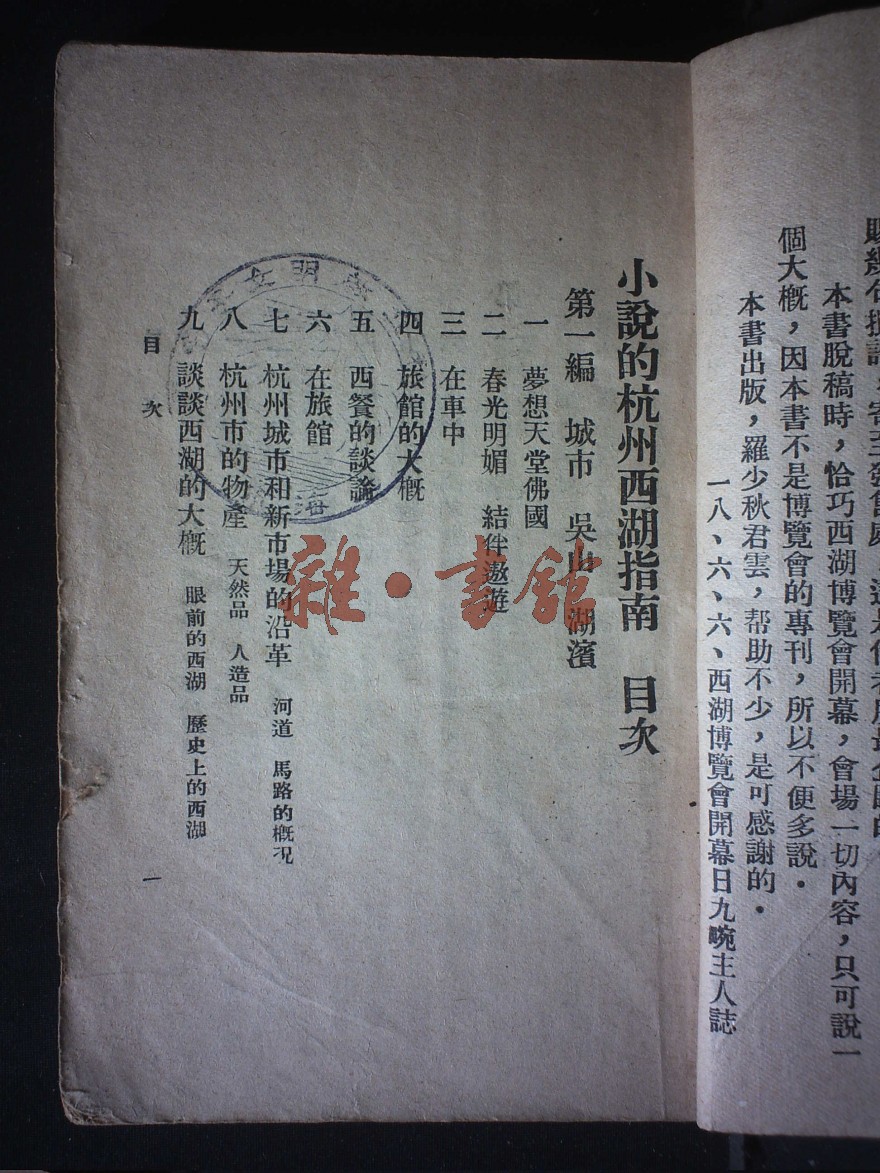 本書脫稿時，恰巧西湖博覽會開幕，會場一切內容，只可說一
個大槪，因本書不是博覽會的專刊，所以不便多說．
本書出版，羅少秋君雲，帮助不少，是可感謝的．
一八、六、六、西湖博覽會開幕日九畹主人誌
小說的杭州西湖指南　目次
第一編　城市　吳山　湖濱
一　夢想天堂佛國
二　春光明媚　結伴遨遊
三　在車中
四　旅館的大槪
五　西餐的談論
六　在旅館
七　杭州城市和新市場的沿革　河道　馬路的槪況
八　杭州市的物產　天然品　人造品
九　談談西湖的大槪　眼前的西湖　歷史上的西湖
目次
一
雜·書館